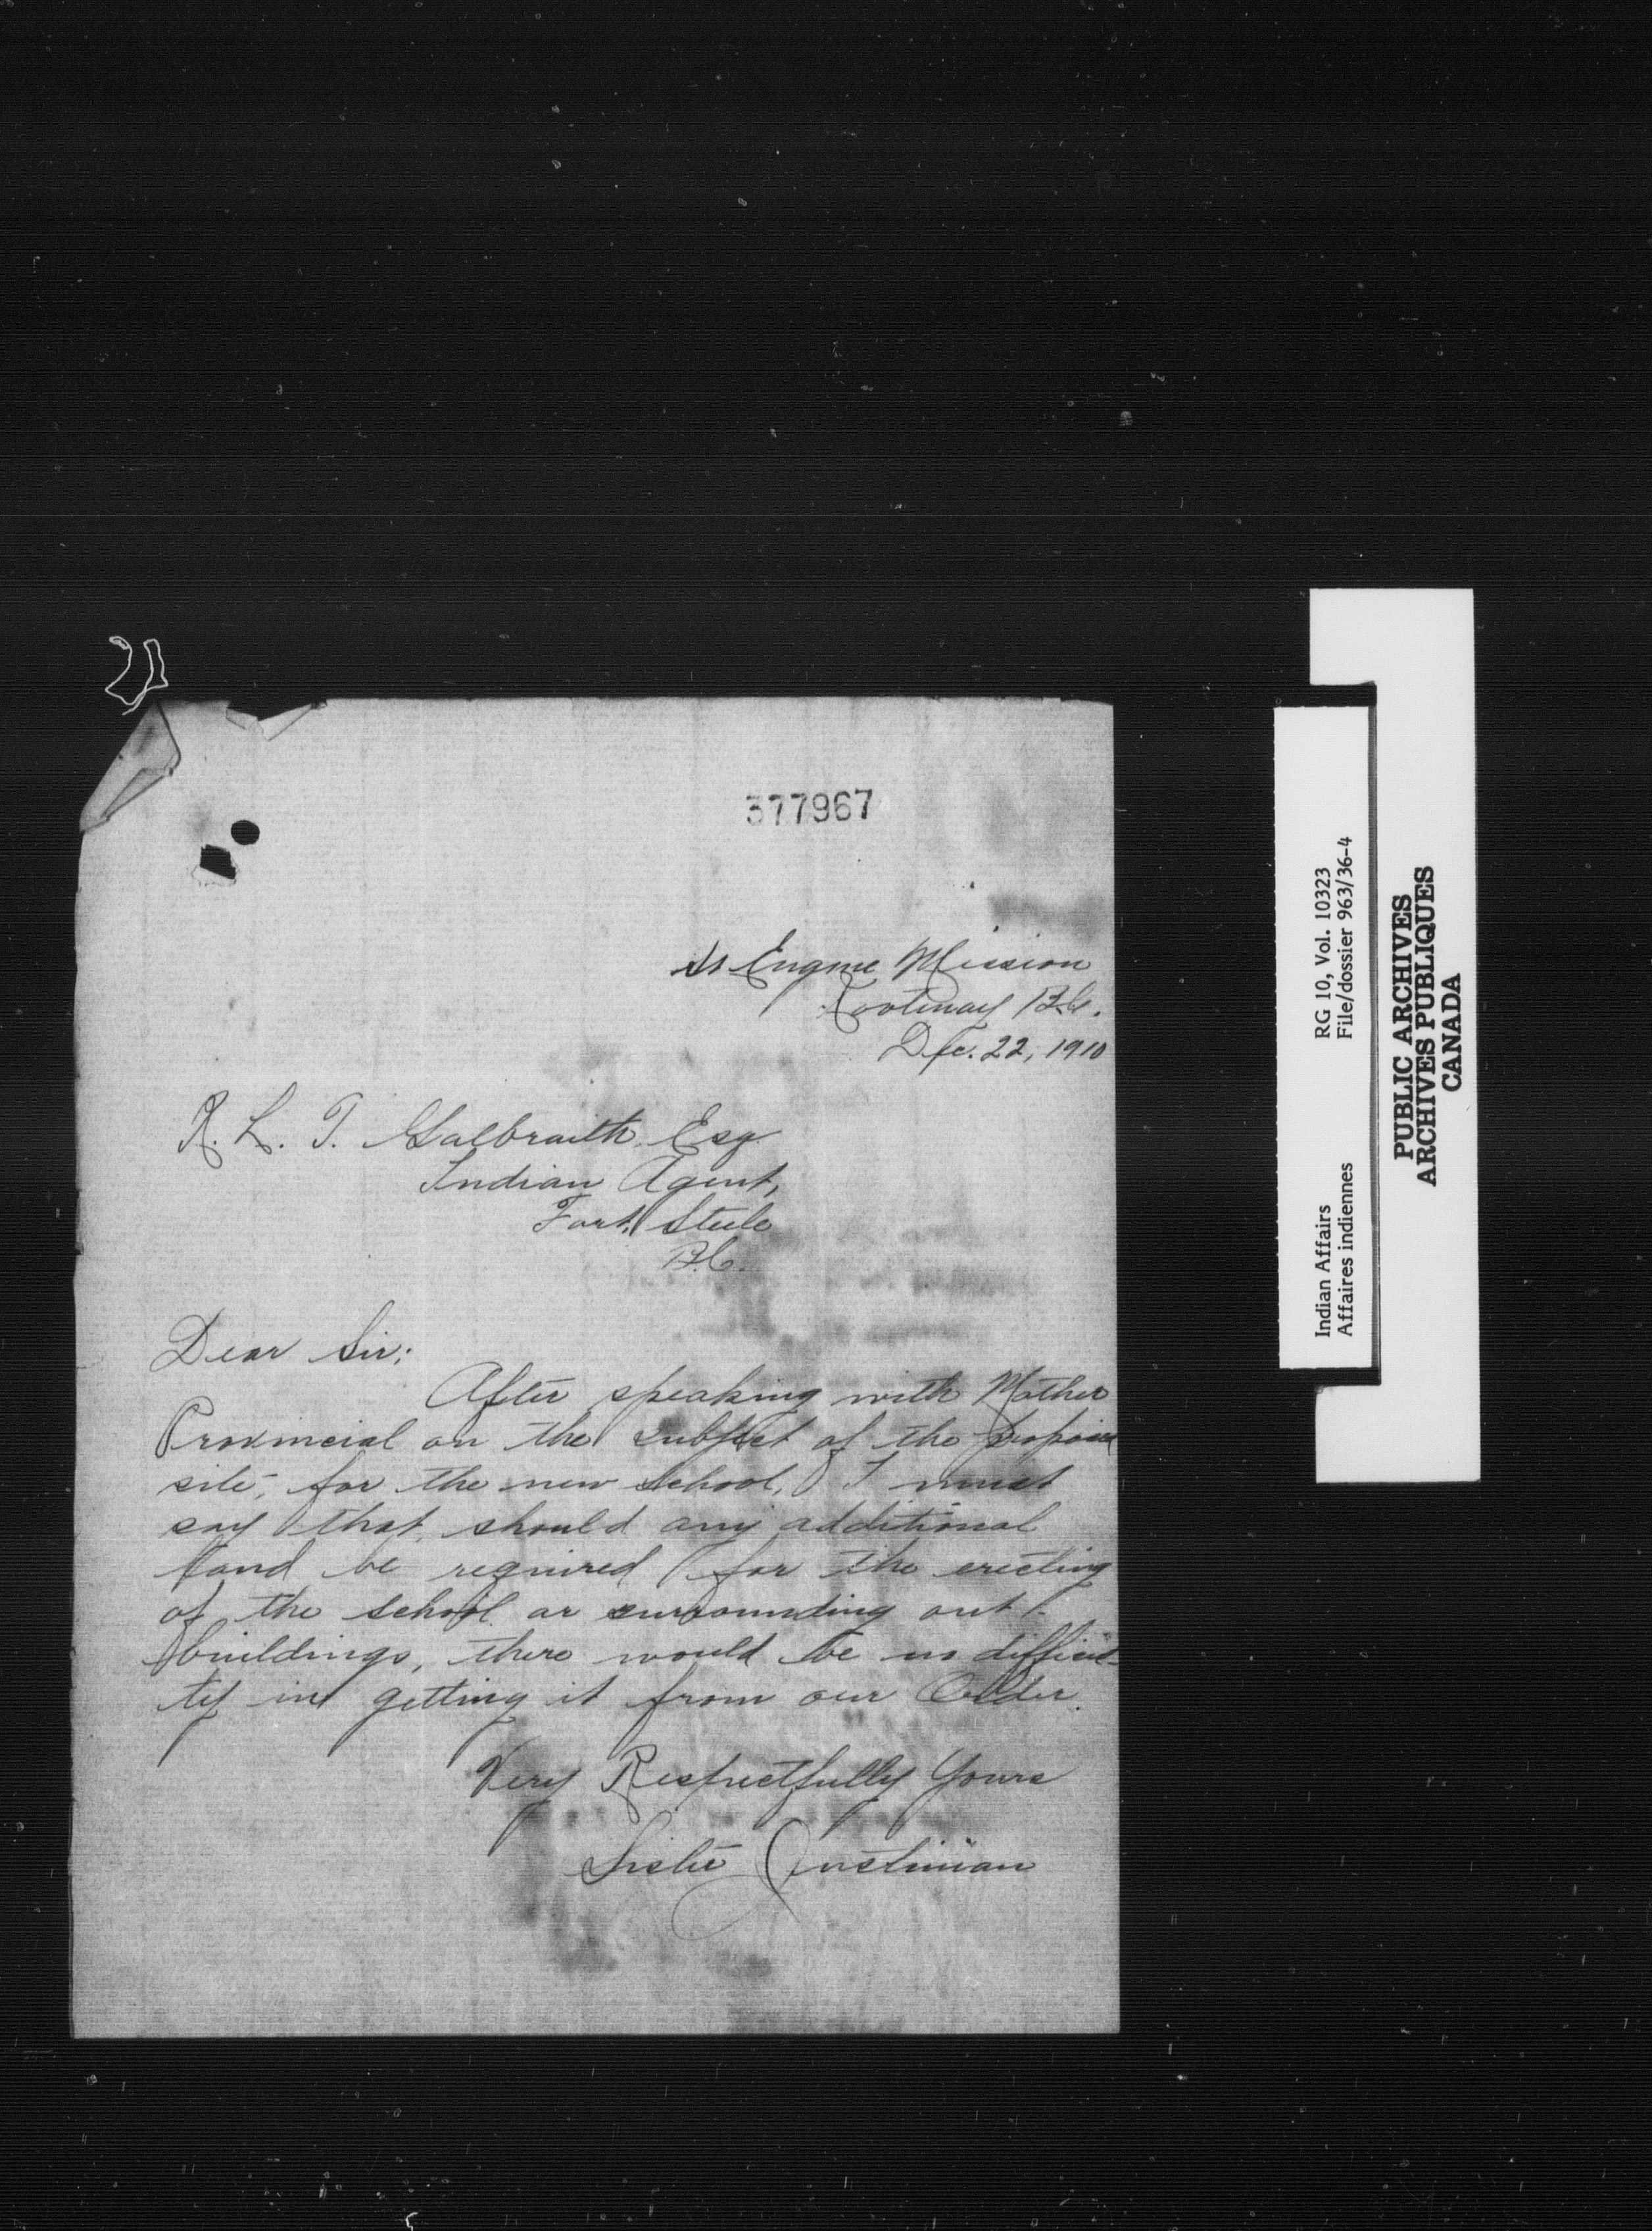 377967
St Eugene Mission
Kootenay B.C.
Dec. 22, 1910
R. L. T. Galbraith Esq.
Indian Agent,
Fort Steele
B.C.
Dear Sir:
After speaking with Mother
Provincial on the subject of the proposed
site, for the new school, I must
say that, should any additional
land be required for the erecting
of the school or surrounding out-
buildings, there would be no difficul-
ty in getting it from our Order.
Very Respectfully Yours
Sister Justinian
Indian Affairs RG 10, Vol. 10323
Affaires indiennes File/dossier 963/36-4
PUBLIC ARCHIVES
ARCHIVES PUBLIQUES
CANADA